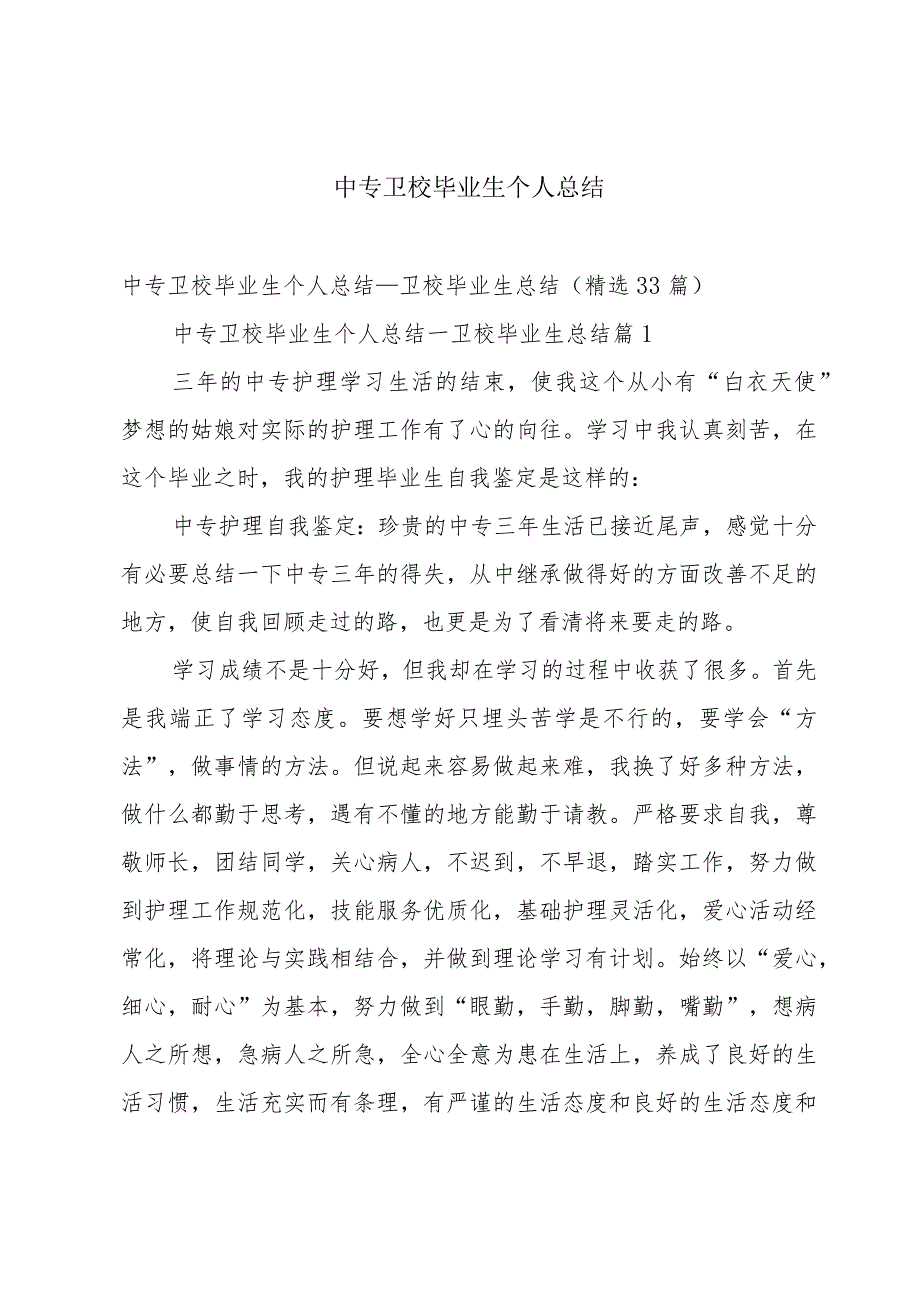 中专卫校毕业生个人总结
中专卫校毕业生个人总结—卫校毕业生总结（精选33 篇）
中专卫校毕业生个人总结一卫校毕业生总结篇 1
三年的中专护理学习生活的结束，使我这个从小有“白衣天使”
梦想的姑娘对实际的护理工作有了心的向往。学习中我认真刻苦，在
这个毕业之时，我的护理毕业生自我鉴定是这样的：
中专护理自我鉴定：珍贵的中专三年生活已接近尾声，感觉十分
有必要总结一下中专三年的得失，从中继承做得好的方面改善不足的
地方，使自我回顾走过的路，也更是为了看清将来要走的路。
学习成绩不是十分好，但我却在学习的过程中收获了很多。首先
是我端正了学习态度。要想学好只埋头苦学是不行的，要学会“方
法”，做事情的方法。但说起来容易做起来难，我换了好多种方法，
做什么都勤于思考，遇有不懂的地方能勤于请教。严格要求自我，尊
敬师长，团结同学，关心病人，不迟到，不早退，踏实工作，努力做
到护理工作规范化，技能服务优质化，基础护理灵活化，爱心活动经
常化，将理论与实践相结合，并做到理论学习有计划。始终以“爱心，
细心，耐心”为基本，努力做到“眼勤，手勤，脚勤，嘴勤”，想病
人之所想，急病人之所急，全心全意为患在生活上，养成了良好的生
活习惯，生活充实而有条理，有严谨的生活态度和良好的生活态度和